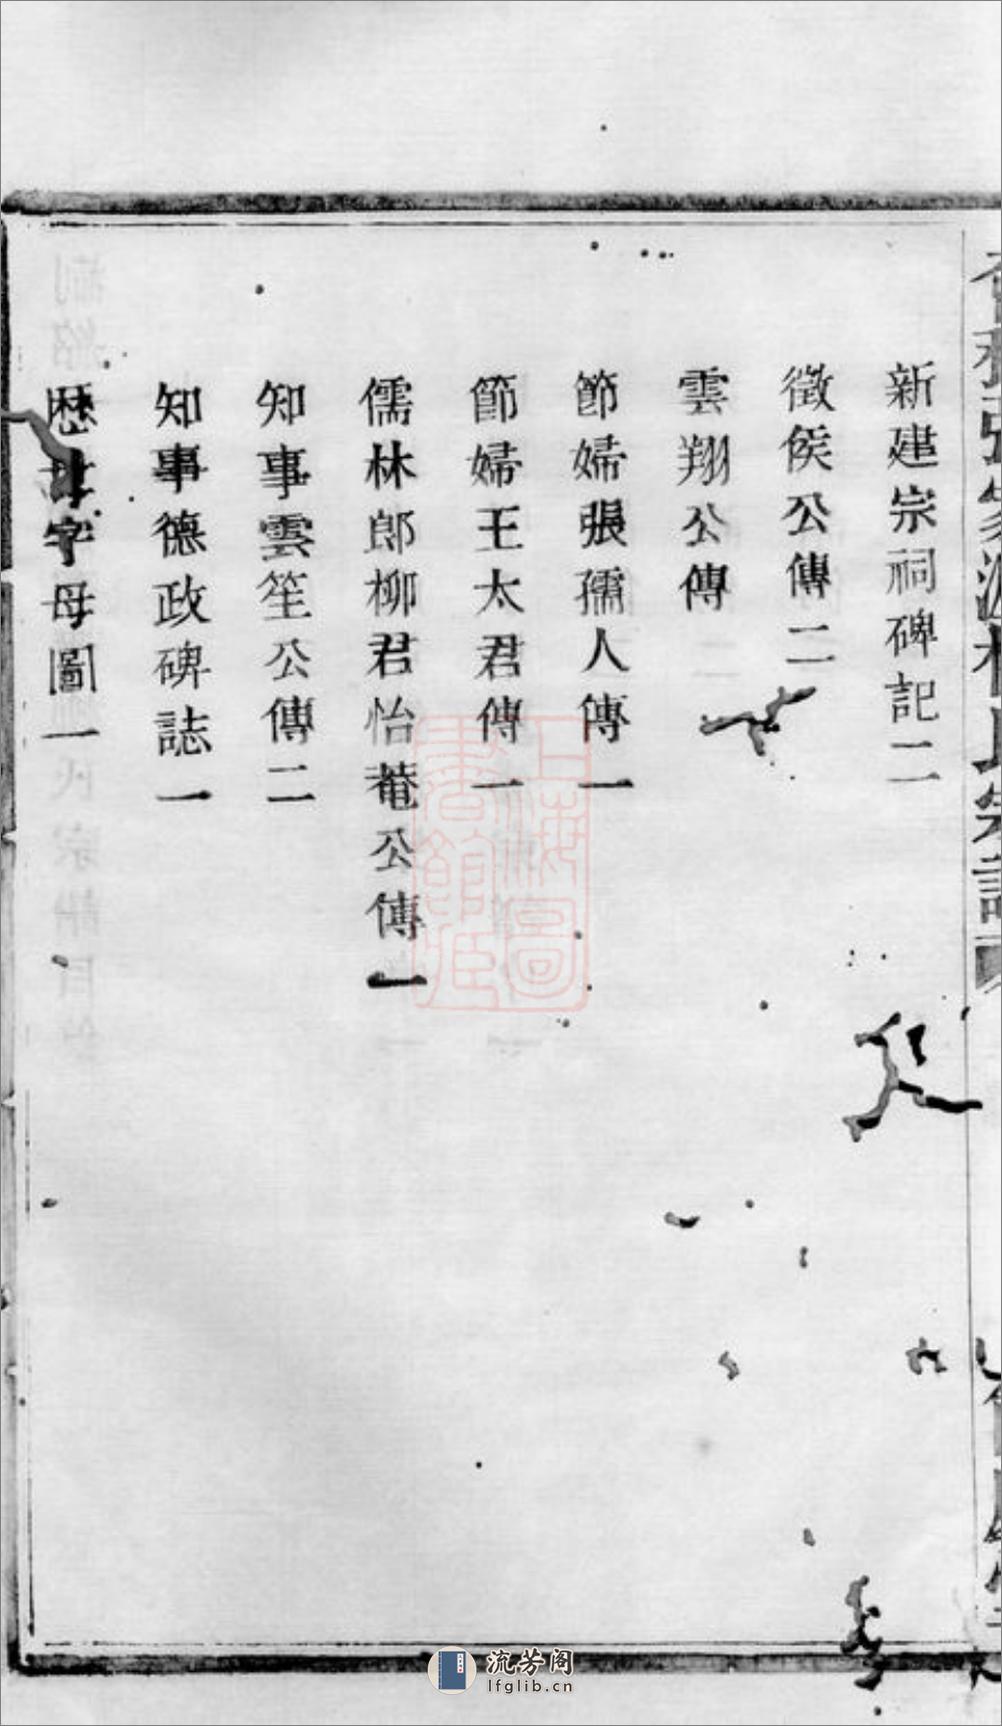 新建宗祠碑記二
徵侯公傳二
雲翔公傳
節婦張孺人傳一
節婦王太君傳一
儒林郎柳君怡菴公傳一
知事雲笙公傳二
知事德政碑誌一
歷世字母圖一
上海圖書館藏
流芳阁
lfglib.cn